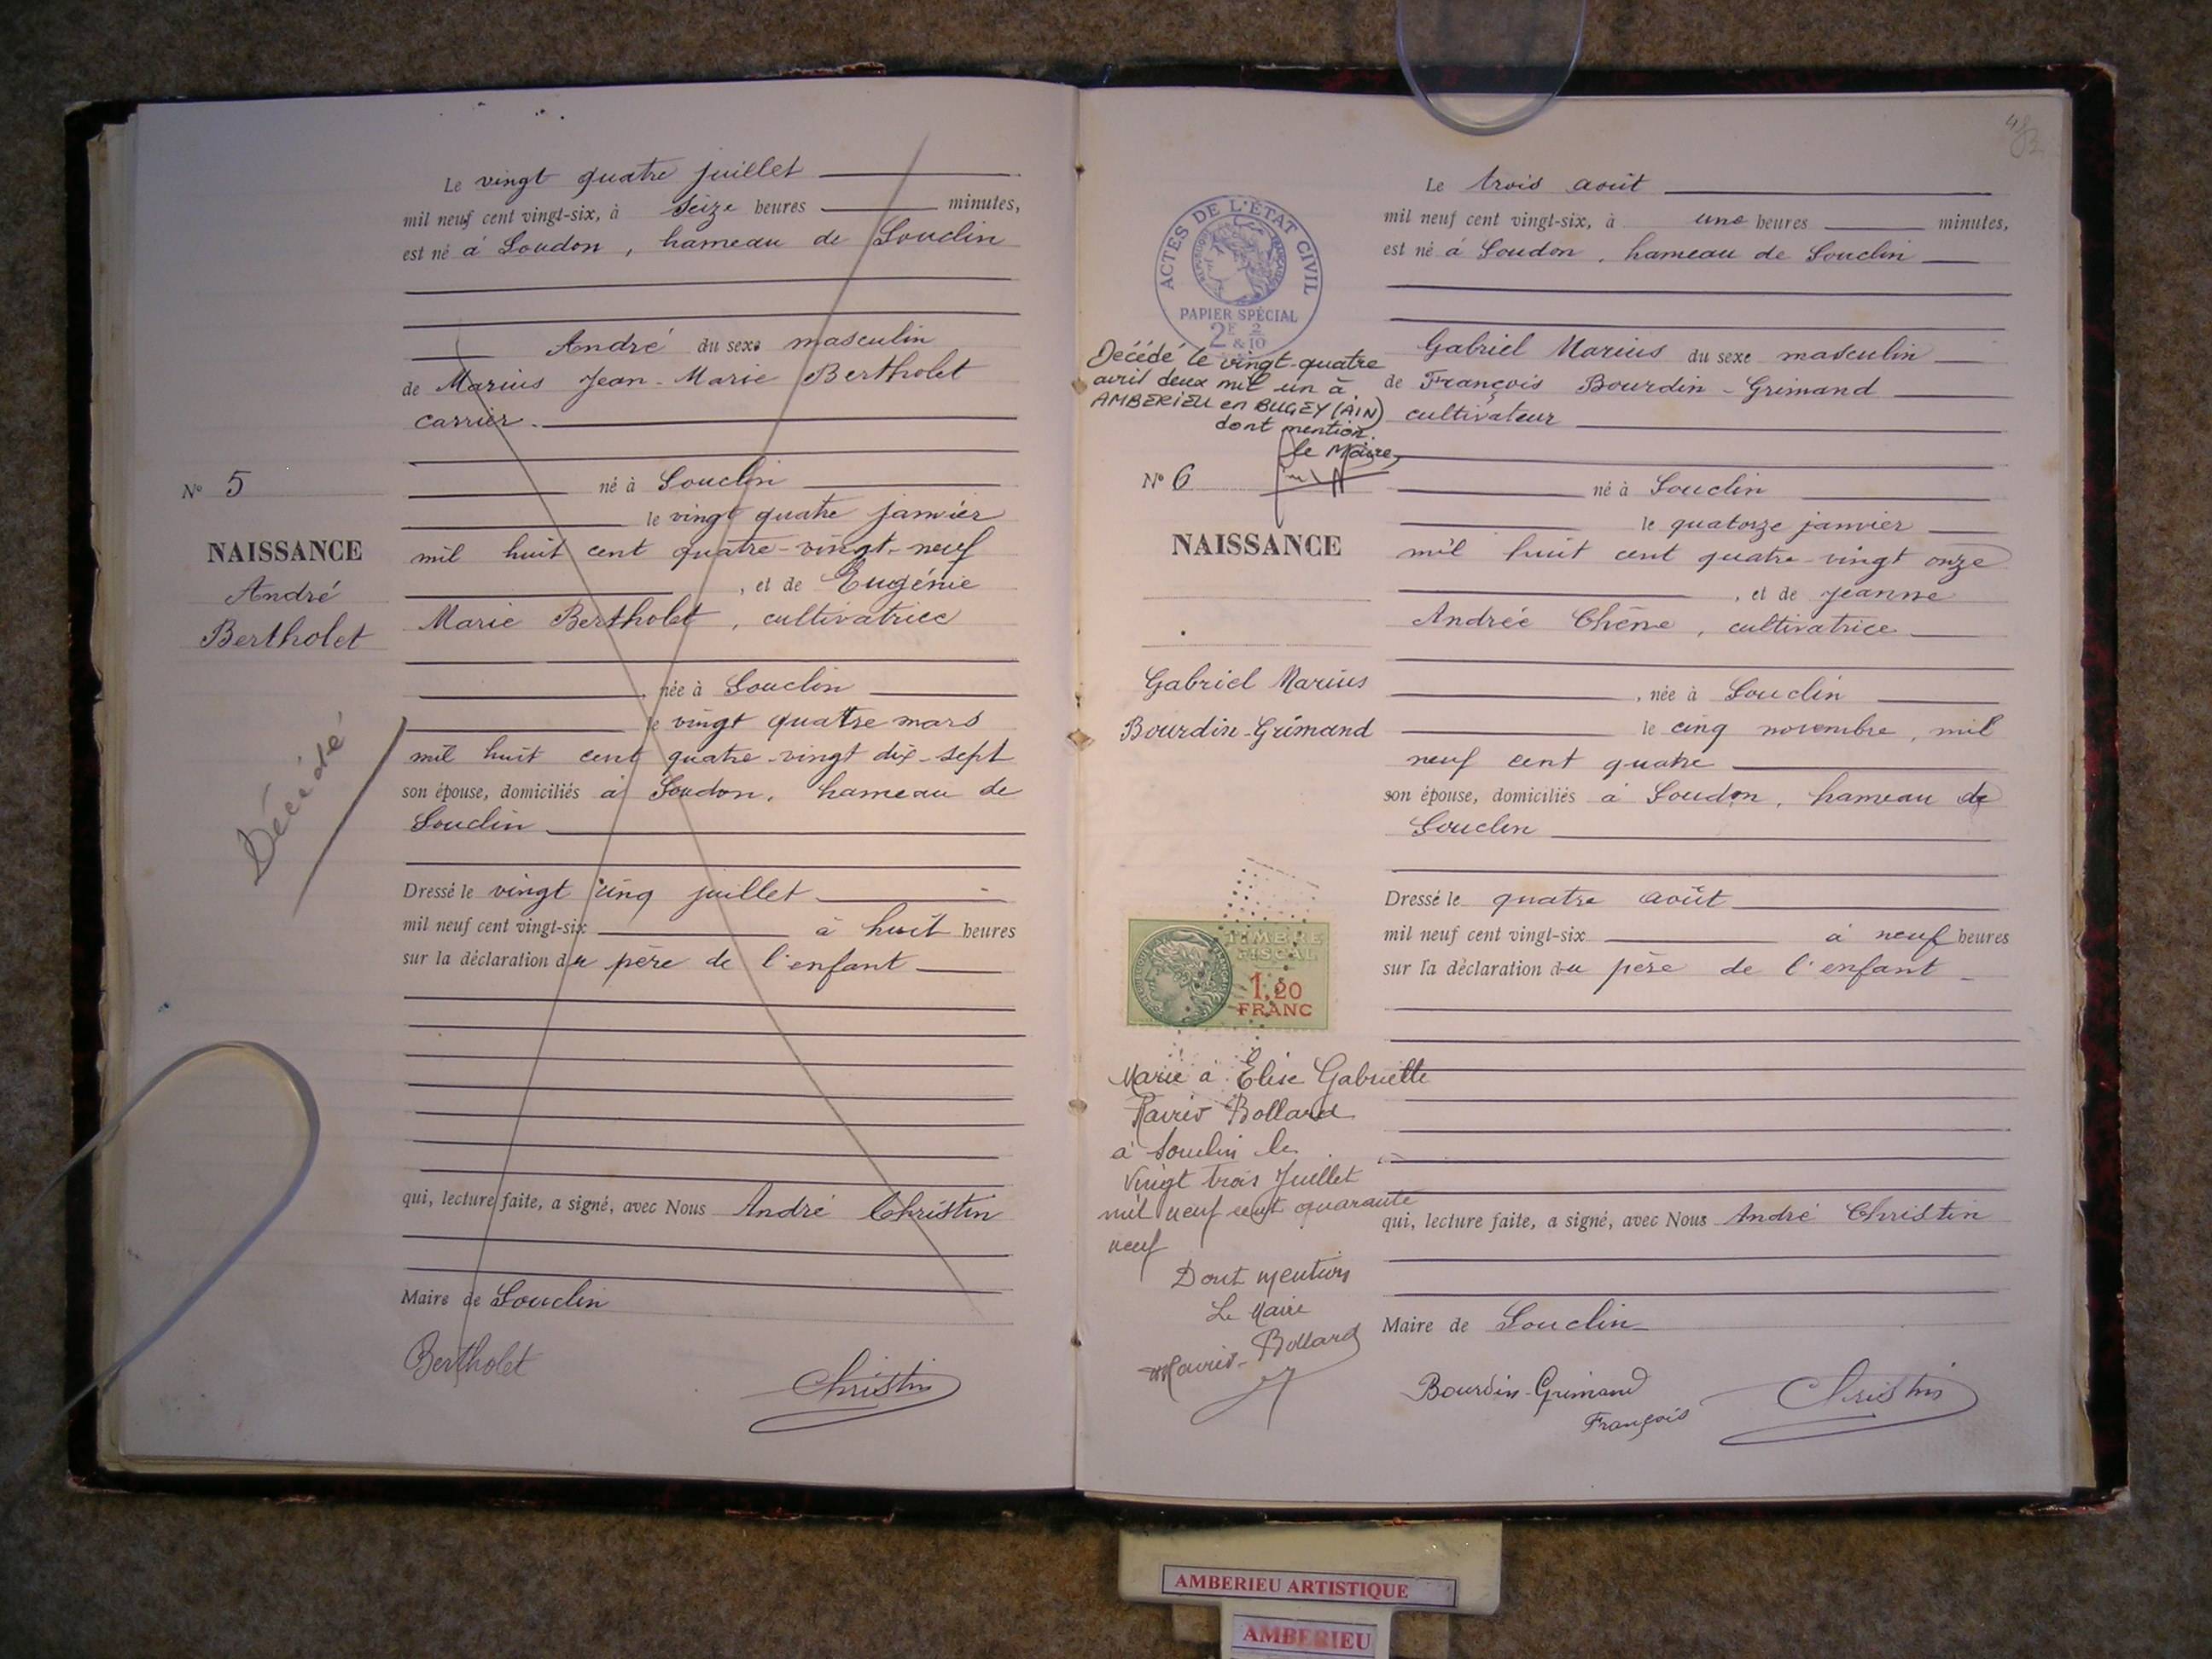 Le vingt quatre juillet
mil neuf cent vingt-six, à seize heures minutes,
est né à Soudon, hameau de Souclin
André du sexe masculin
de Marius Jean-Marie Bertholet
carrier.
né à Souclin
le vingt quatre janvier
mil huit cent quatre-vingt-neuf
, et de Eugénie
Marie Bertholet, cultivatrice
, née à Souclin
le vingt quattre mars
mil huit cent quatre-vingt dix-sept
son épouse, domiciliés à Soudon, hameau de
Souclin
Dressé le vingt cinq juillet
mil neuf cent vingt-six à huit heures
sur la déclaration du père de l'enfant
qui, lecture faite, a signé, avec Nous André Christin
Maire de Souclin
Bertholet
Christin
N° 5
NAISSANCE
André
Bertholet
Décédé
Le trois août
mil neuf cent vingt-six, à une heures minutes,
est né à Soudon, hameau de Souclin
Gabriel Marius du sexe masculin
de François Bourdin-Grimand
cultivateur
né à Souclin
le quatorze janvier
mil huit cent quatre-vingt onze
, et de Jeanne
Andrée Chêne, cultivatrice
, née à Souclin
le cinq novembre, mil
neuf cent quatre
son épouse, domiciliés à Soudon, hameau de
Souclin
Dressé le quatre août
mil neuf cent vingt-six à neuf heures
sur la déclaration du père de l'enfant
qui, lecture faite, a signé, avec Nous André Christin
Maire de Souclin
Bourdin-Grimand
François
Christin
ACTES DE L'ÉTAT CIVIL
PAPIER SPÉCIAL
2F 2
& 10
Décédé le vingt-quatre
avril deux mil un à
AMBERIEU en BUGEY (AIN)
dont mention.
Le Maire,
N° 6
NAISSANCE
Gabriel Marius
Bourdin-Grimand
TIMBRE
FISCAL
1,20
FRANC
Marié à Elise Gabrielle
Bollard
à Souclin le
vingt trois Juillet
mil neuf cent quarante
neuf
Dont mention
Le Maire
Bollard
AMBERIEU ARTISTIQUE
AMBERIEU